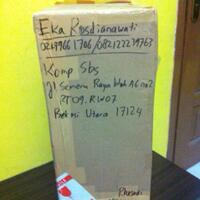 Eka Rosdianawati
02199661706/082122239763
Komp Sbs
Jl Semeru Raya blok A6 no 2
RT09. RW07
Bekasi Utara 17124